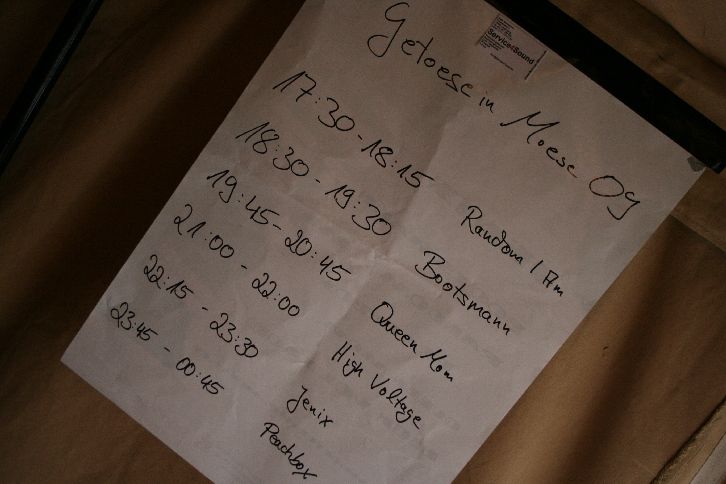 Getoese in Moese 09
Service4Sound
17:30 - 18:15 Random I Am
18:30 - 19:30 Bootsmann
19:45 - 20:45 Queen Mom
21:00 - 22:00 High Voltage
22:15 - 23:30 Jenix
23:45 - 00:45 Peachbox